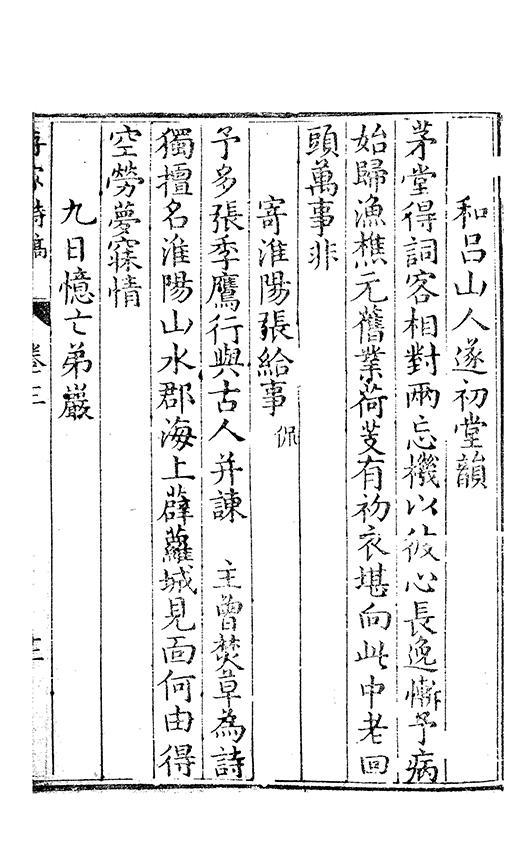 和呂山人遂初堂韻
茅堂得詞客相對兩忘機以彼心長逸慚予病
始歸漁樵元舊業荷芰有初衣堪向此中老回
頭萬事非
寄淮陽張給事侃
予多張季鷹行與古人并諫 主曾焚草為詩
獨擅名淮陽山水郡海上薜蘿城見面何由得
空勞夢寐情
九日憶亡弟巖
詩稿 卷三